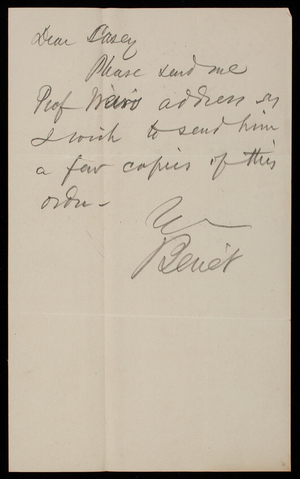 Dear Casey
Please send me
Prof Weir's address as
I wish to send him
a few copies of this
order –
Benét